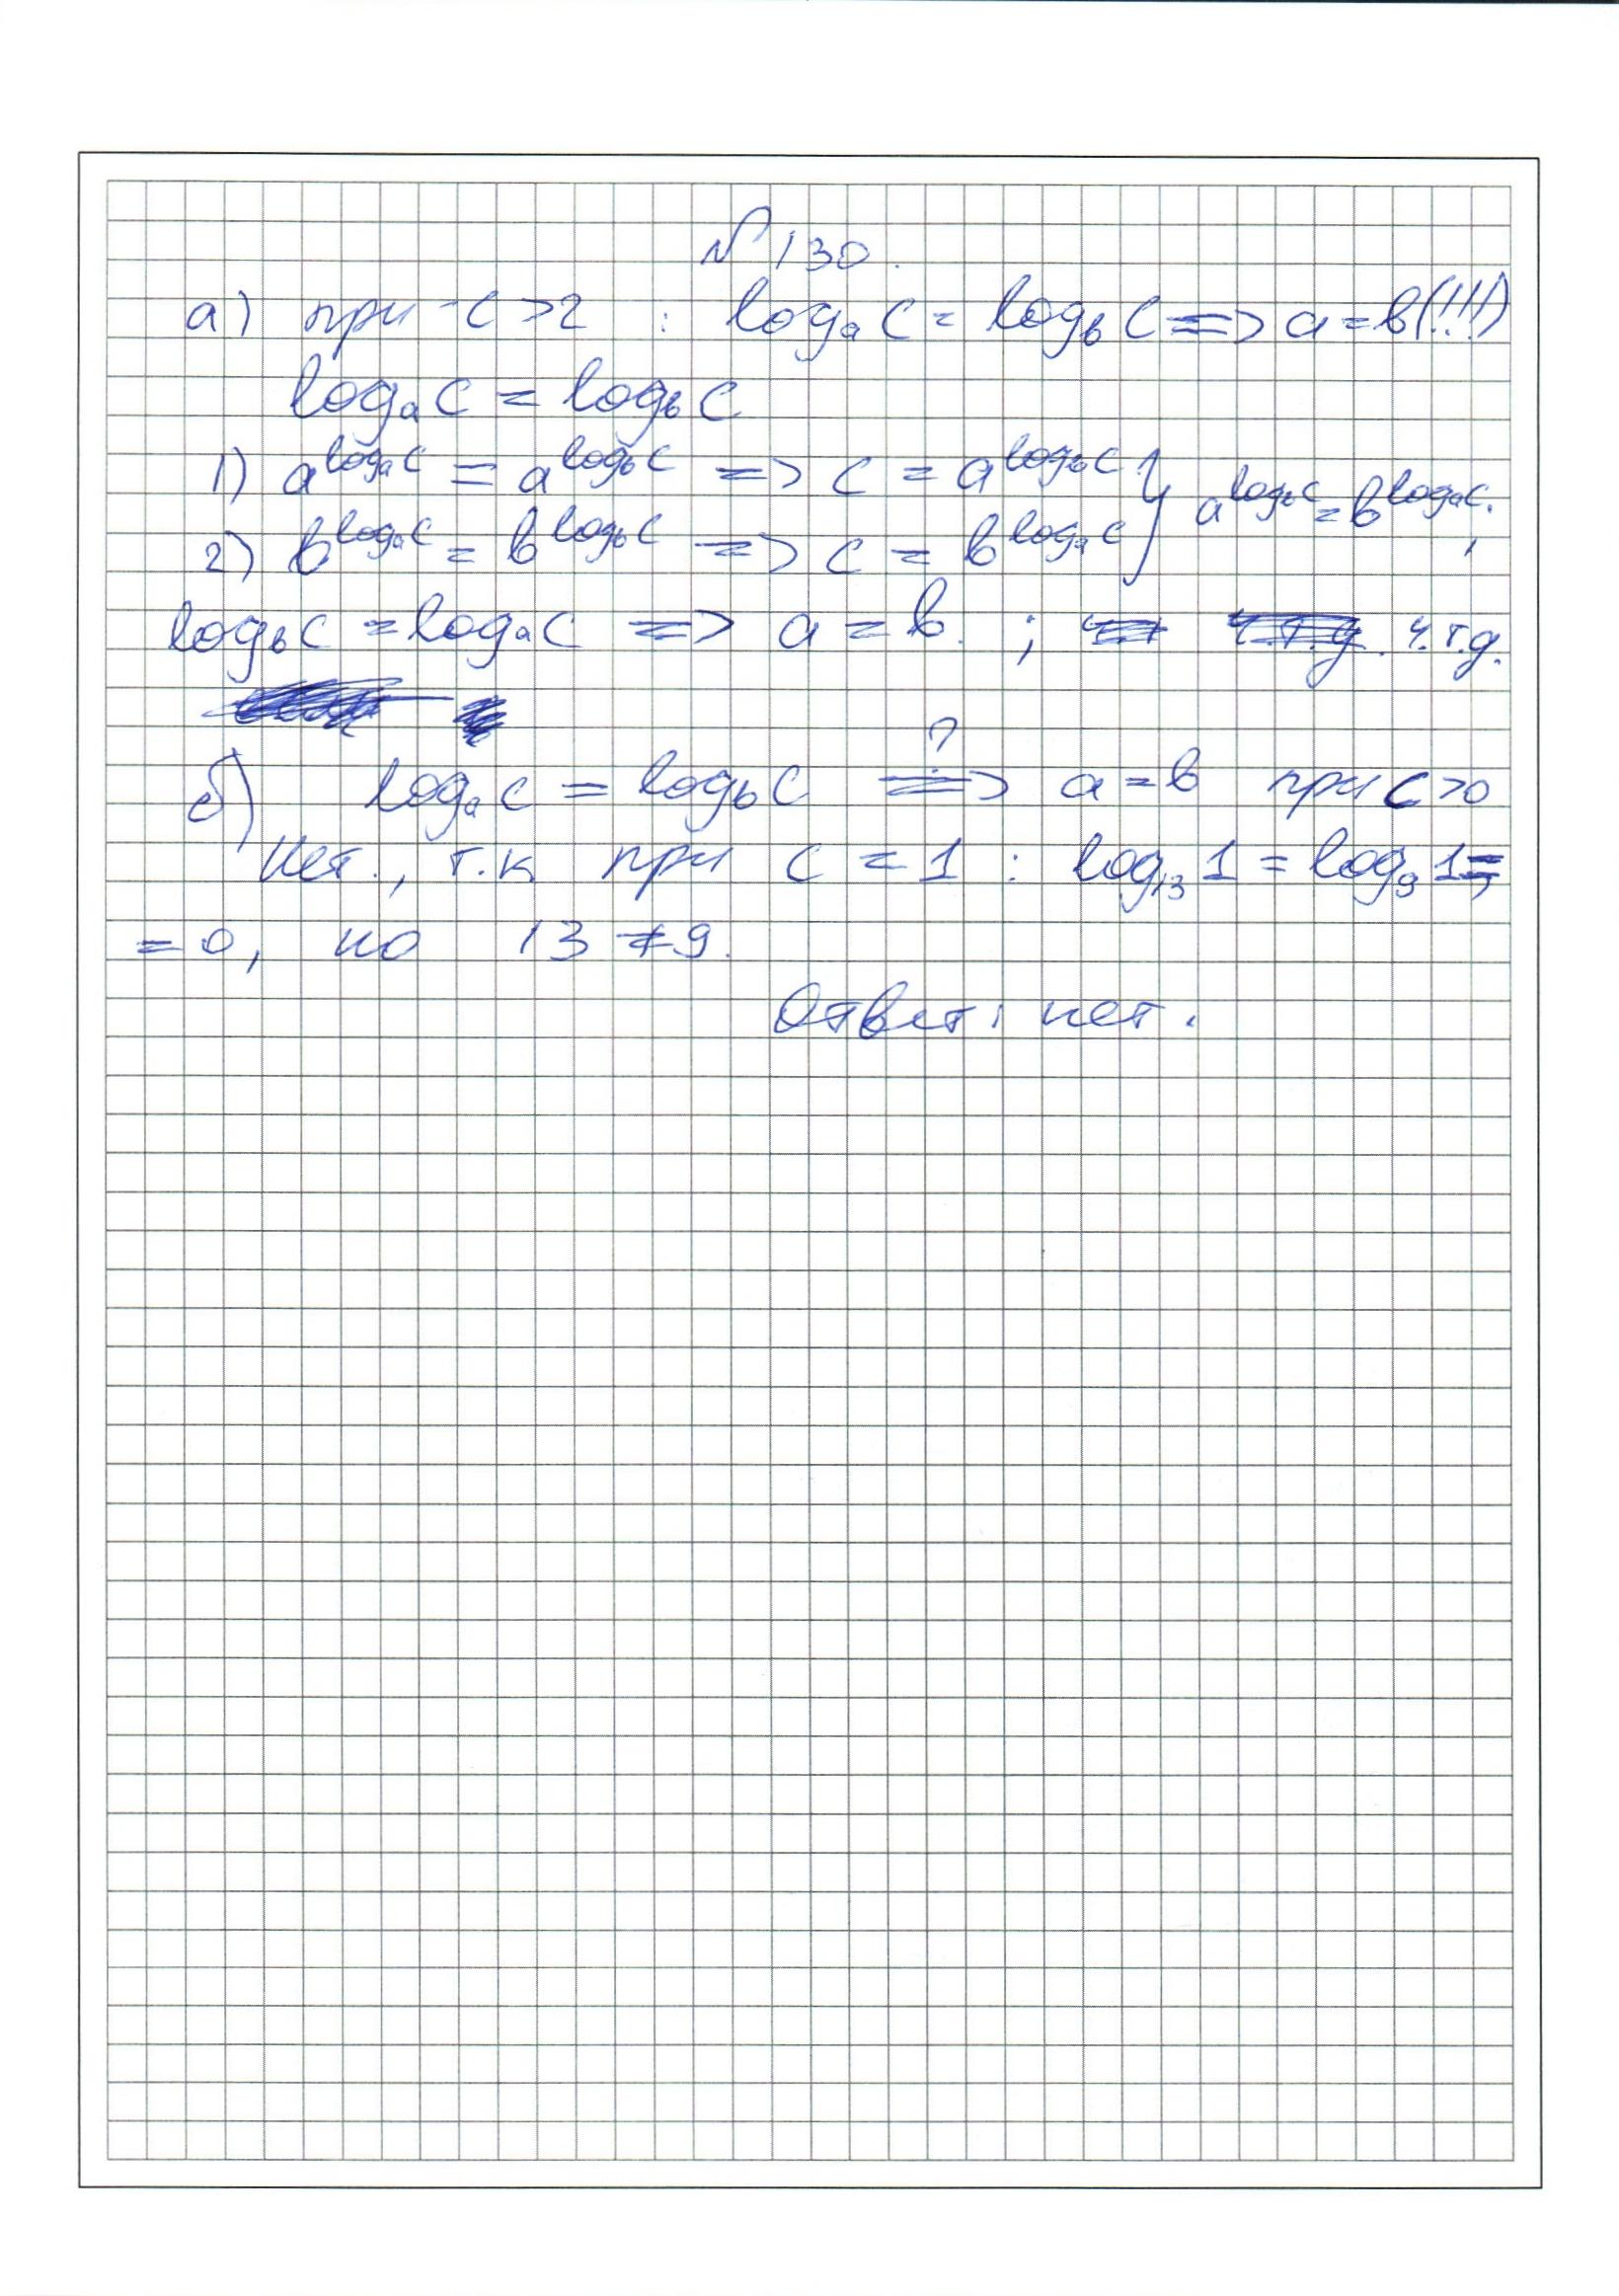 № 130.
а) при c > 2 : logₐ c = log_b c => a = b (!!!)
logₐ c = log_b c
1) a^(logₐ c) = a^(log_b c) => c = a^(log_b c) } a^(log_b c) = b^(logₐ c);
2) b^(logₐ c) = b^(log_b c) => c = b^(logₐ c)
log_b c = logₐ c => a = b. ; ч.т.д.
б) logₐ c = log_b c ?=> a = b при c > 0
Нет., т.к при c = 1 : log₁₃ 1 = log₉ 1 =
= 0, но 13 ≠ 9.
Ответ: нет.